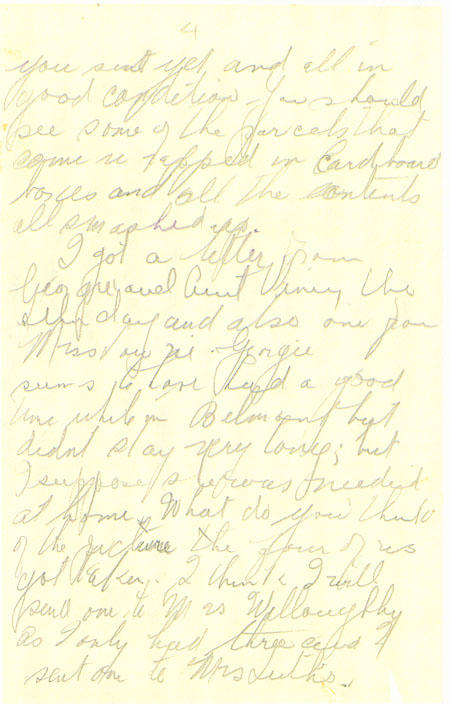 4
you sent yet, and all in
good condition. You should
see some of the parcels that
come in rapped in Cardboard
boxes and all the contents
all smashed up.
I got a letter from
Georgie and Aunt Viney the
other day and also one from
Miss
Georgie
seems to have had a good
time while in Belmont but
didnt stay very long; but
I suppose she was needed
at home. What do you think
of the picture the four of us
got taken. I think I will
send one to Mrs Willoughby
as I only had three and I
sent one to Mrs